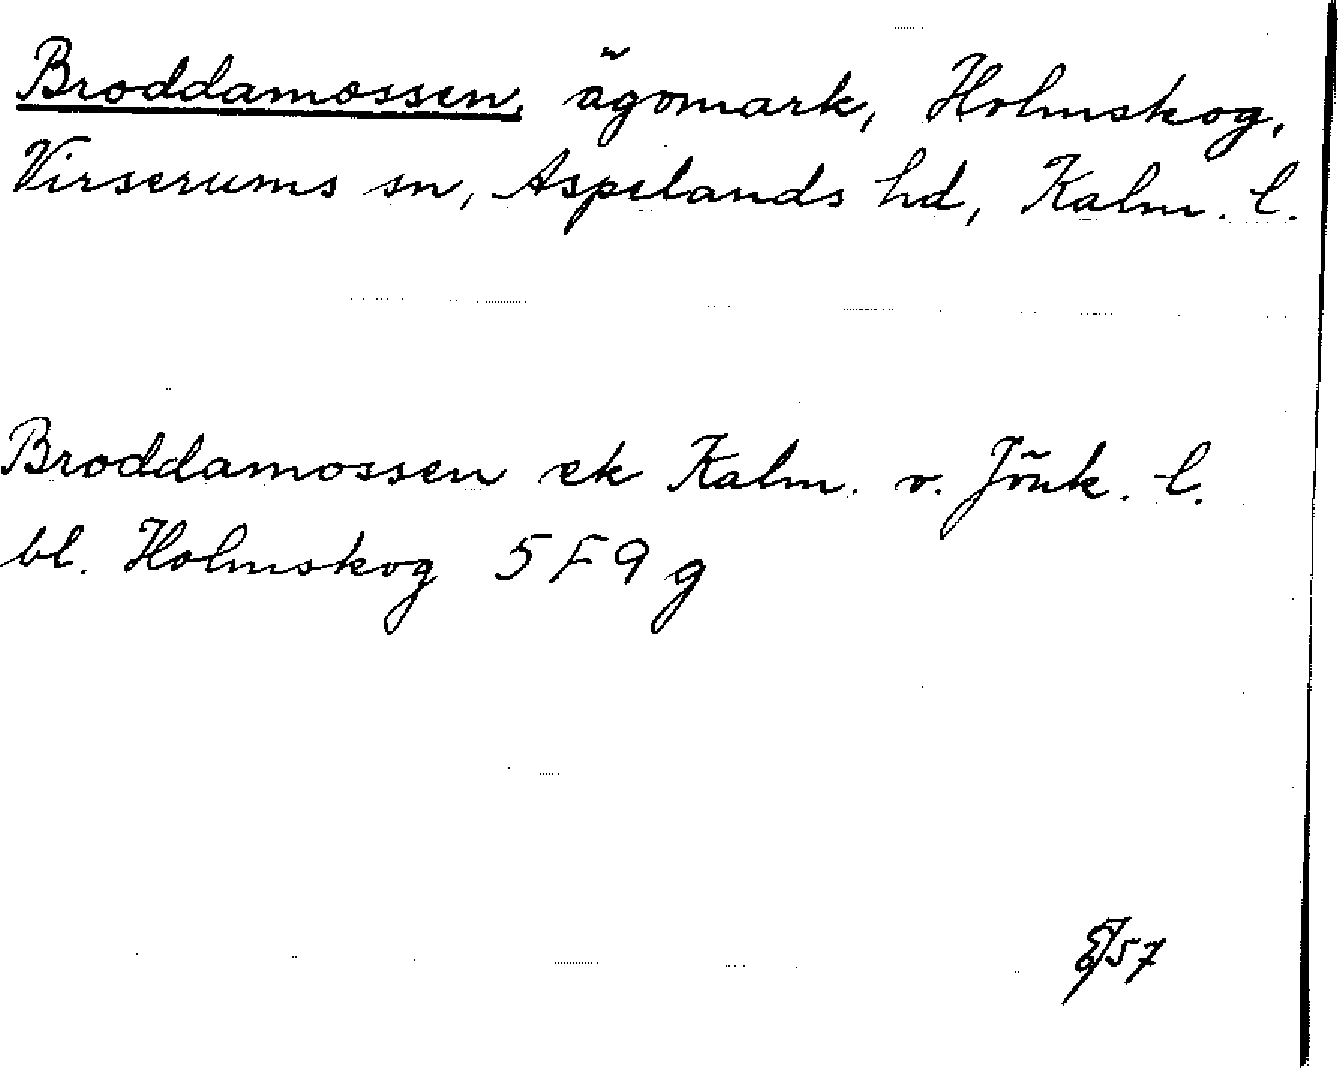 Broddamossen, ägomark, Holmskog,
Virserums sn, Aspelands hd, Kalm. l.
Broddamossen ek Kalm. v. Jönk. l.
bl. Holmskog 5 F 9 g
57